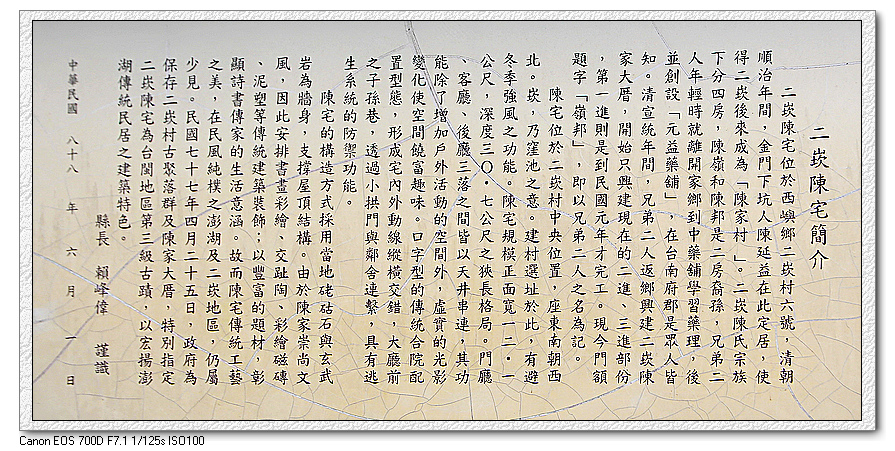 二崁陳宅簡介
二崁陳宅位於西嶼鄉二崁村六號，清朝
順治年間，金門下坑人陳延益在此定居，使
得二崁後來成為「陳家村」。二崁陳氏宗族
下分四房，陳嶺和陳邦是二房裔孫，兄弟二
人年輕時就離開家鄉到中藥舖學習藥理，後
並創設「元益藥舖」，在台南府郡是眾人皆
知。清宣統年間，兄弟二人返鄉興建二崁陳
家大厝，開始只興建現在的二進、三進部份
，第一進則是到民國元年才完工。現今門額
題字「嶺邦」，即以兄弟二人之名為記。
陳宅位於二崁村中央位置，座東南朝西
北。崁，乃窪池之意。建村選址於此，有避
冬季強風之功能。陳宅規模正面寬一二．一
公尺，深度三〇．七公尺之狹長格局。門廳
、客廳、後廳三落之間皆以天井串連，其功
能除了增加戶外活動的空間外，虛實的光影
變化使空間饒富趣味。口字型的傳統合院配
置型態，形成宅內外動線縱橫交錯，大廳前
之子孫巷，透過小拱門與鄰舍連繫，具有逃
生系統的防禦功能。
陳宅的構造方式採用當地硓𥑮石與玄武
岩為牆身，支撐屋頂結構。由於陳家崇尚文
風，因此安排書畫彩繪、交趾陶、彩繪磁磚
、泥塑等傳統建築裝飾；以豐富的題材，彰
顯詩書傳家的生活意涵。故而陳宅傳統工藝
之美，在民風純樸之澎湖及二崁地區，仍屬
少見。民國七十七年四月二十五日，政府為
保存二崁村古聚落群及陳家大厝，特別指定
二崁陳宅為台閩地區第三級古蹟，以宏揚澎
湖傳統民居之建築特色。
縣長 賴峰偉 謹識
中華民國 八十八 年 六 月 一 日
Canon EOS 700D F7.1 1/125s ISO100